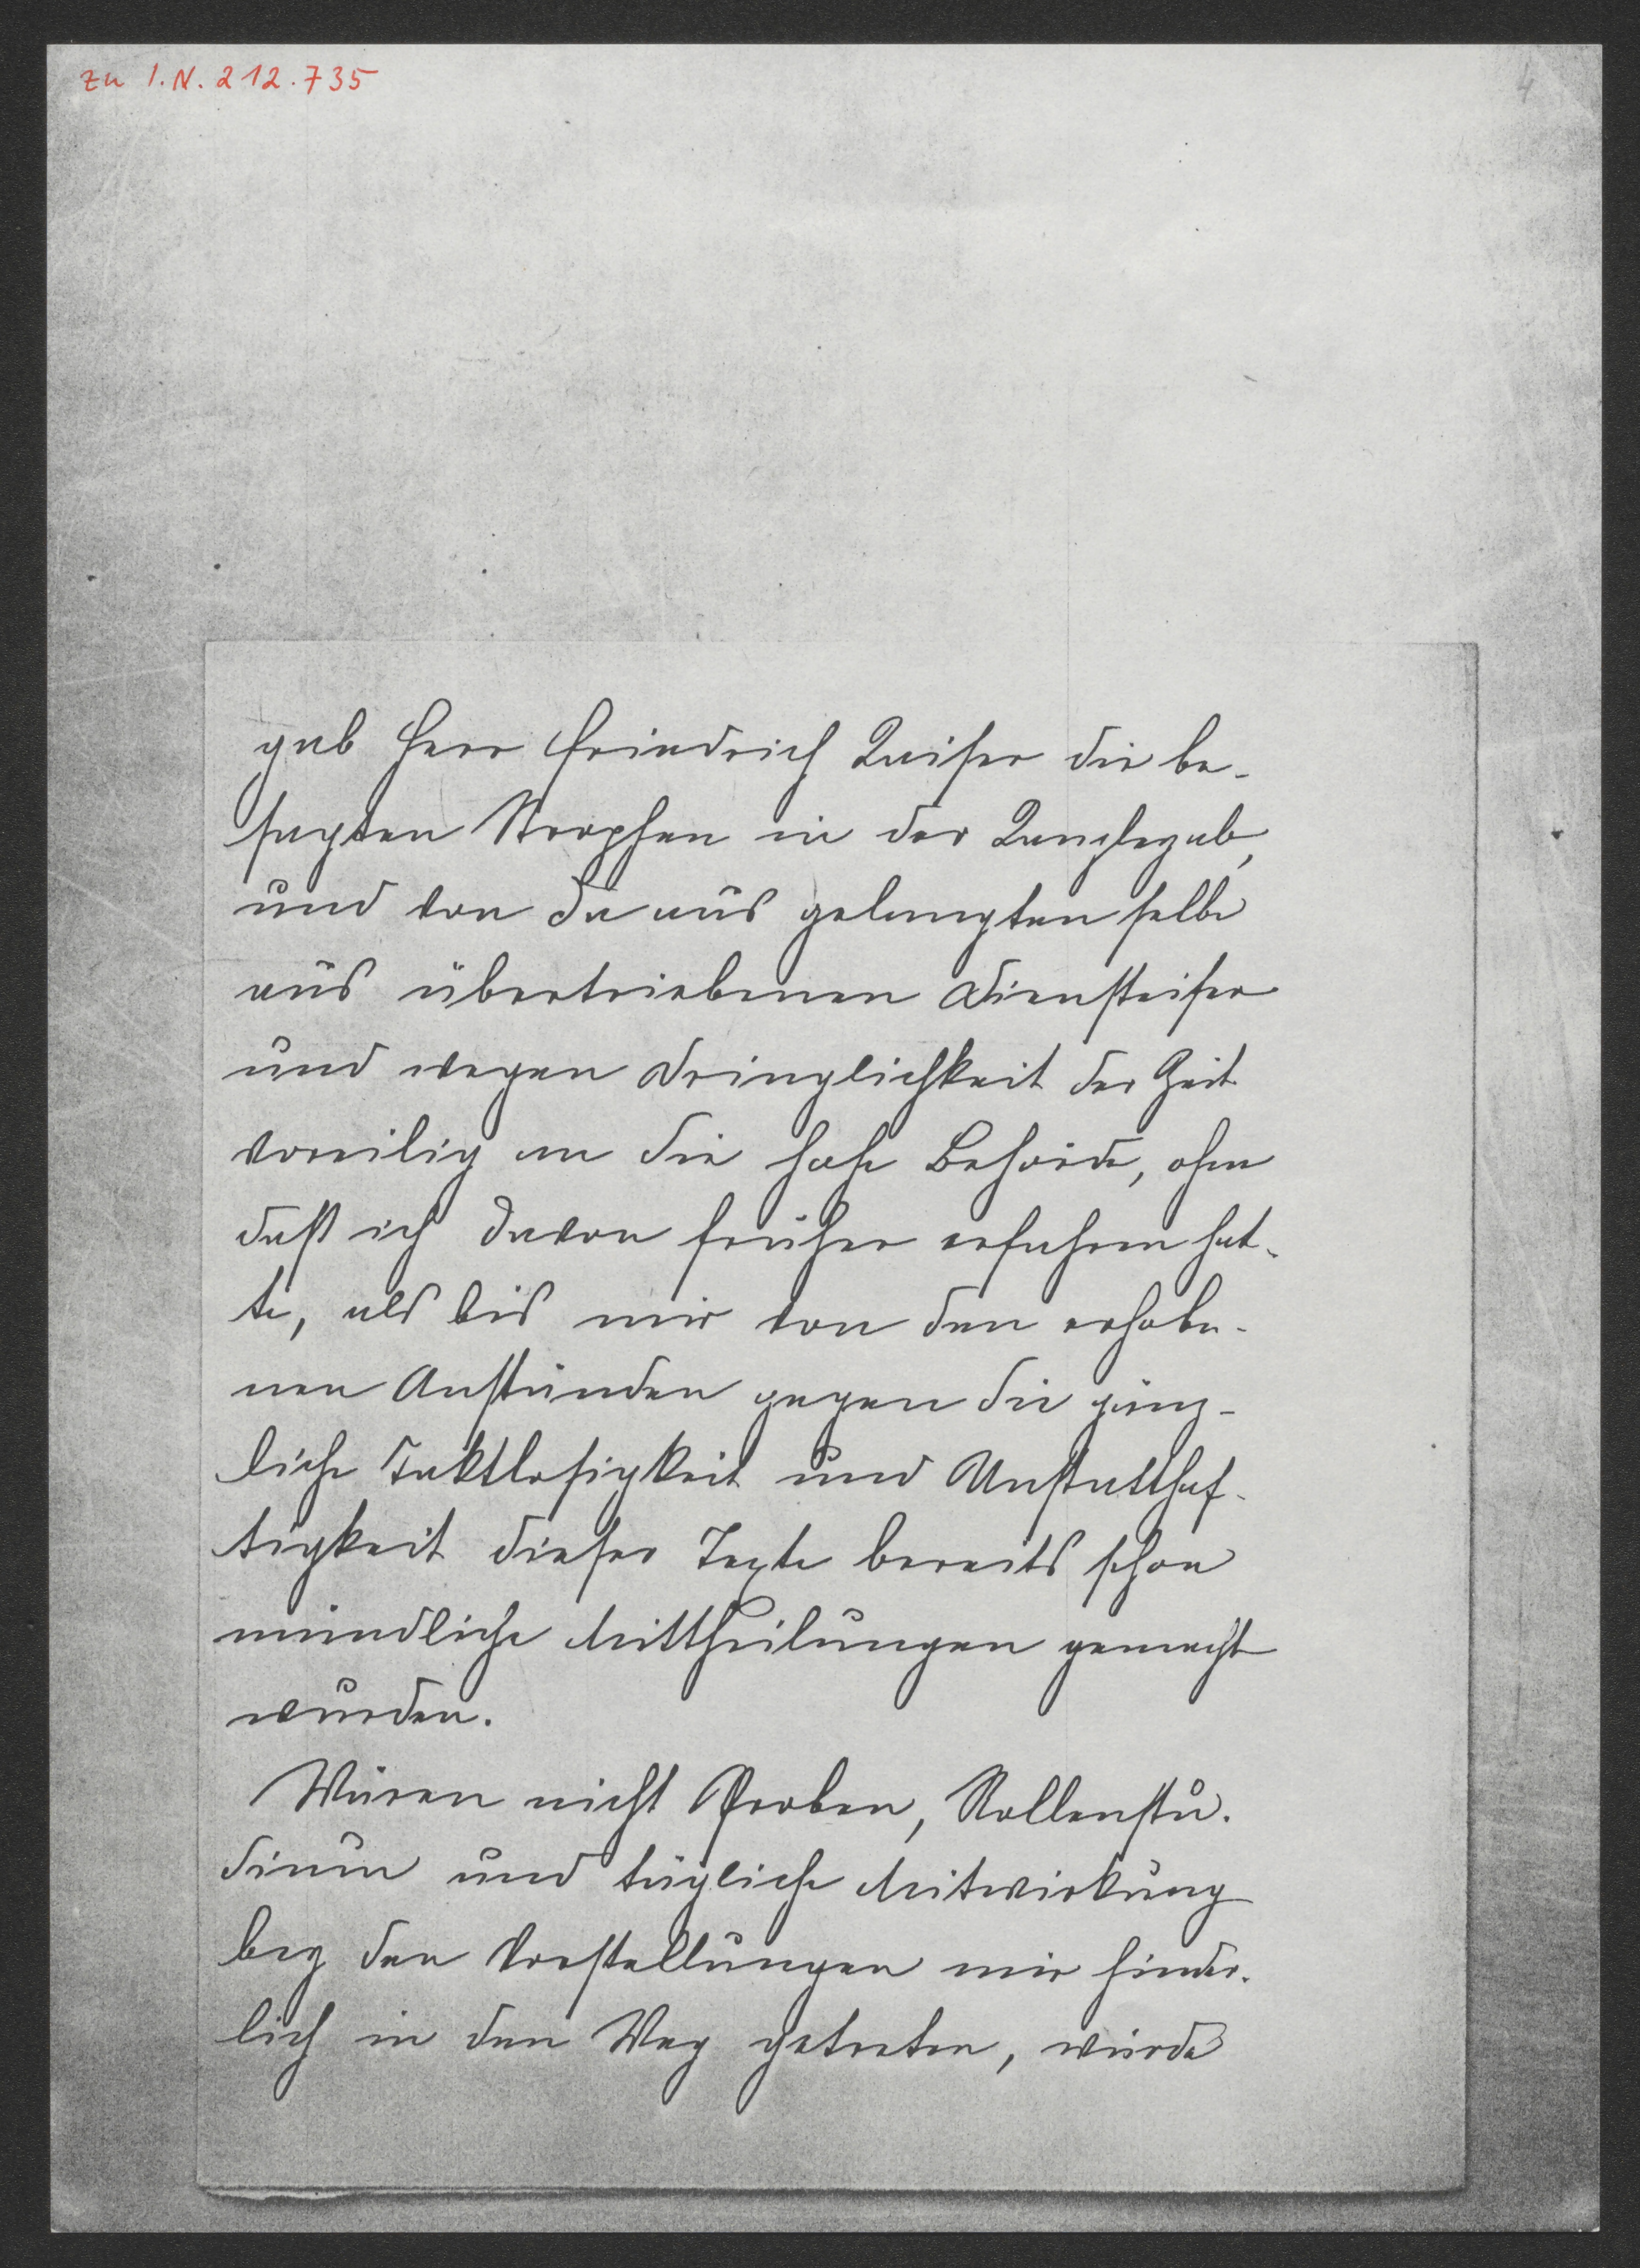 zu I.N. 212.735
4
gab Herr Friedrich Kaiser die be-
sagten Strophen in der Kanzley ab,
und von da aus gelangten selbe
aus übertriebenen Diensteifer
und wegen Dringlichkeit der Zeit
voreilig an die hohe Behörde, ohne
daß ich davon früher erfahren hat-
te, als bis mir von den erhobe-
nen Anständen gegen die gänz-
liche Taktlosigkeit und Unstatthaf-
tigkeit dieser Texte bereits schon
mündliche Mittheilungen gemacht
wurden.
Wären nicht Proben, Rollenstu-
dium und tägliche Mitwirkung
bey den Vorstellungen mir hinder-
lich in den Weg getreten, würde